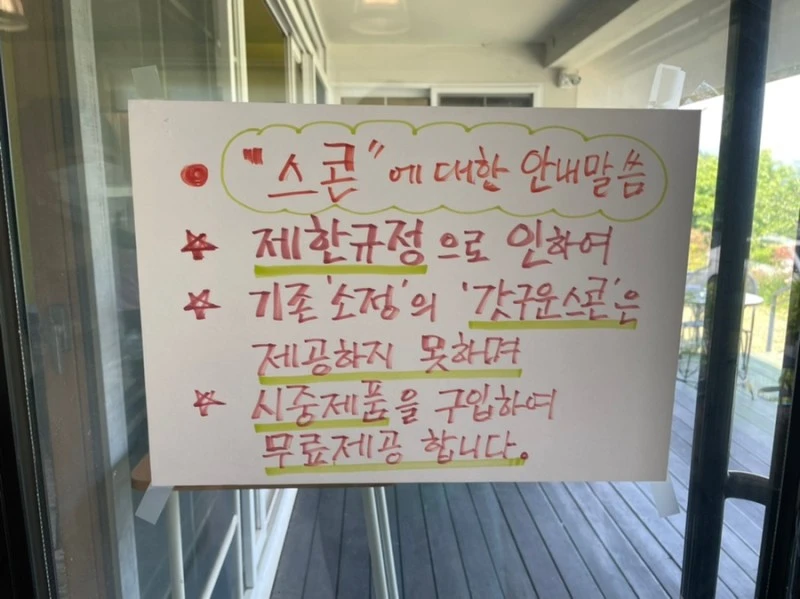 "스콘"에 대한 안내말씀
제한규정으로 인하여
기존 '소정'의 '갓구운스콘'은
제공하지 못하며
시중제품을 구입하여
무료제공 합니다.